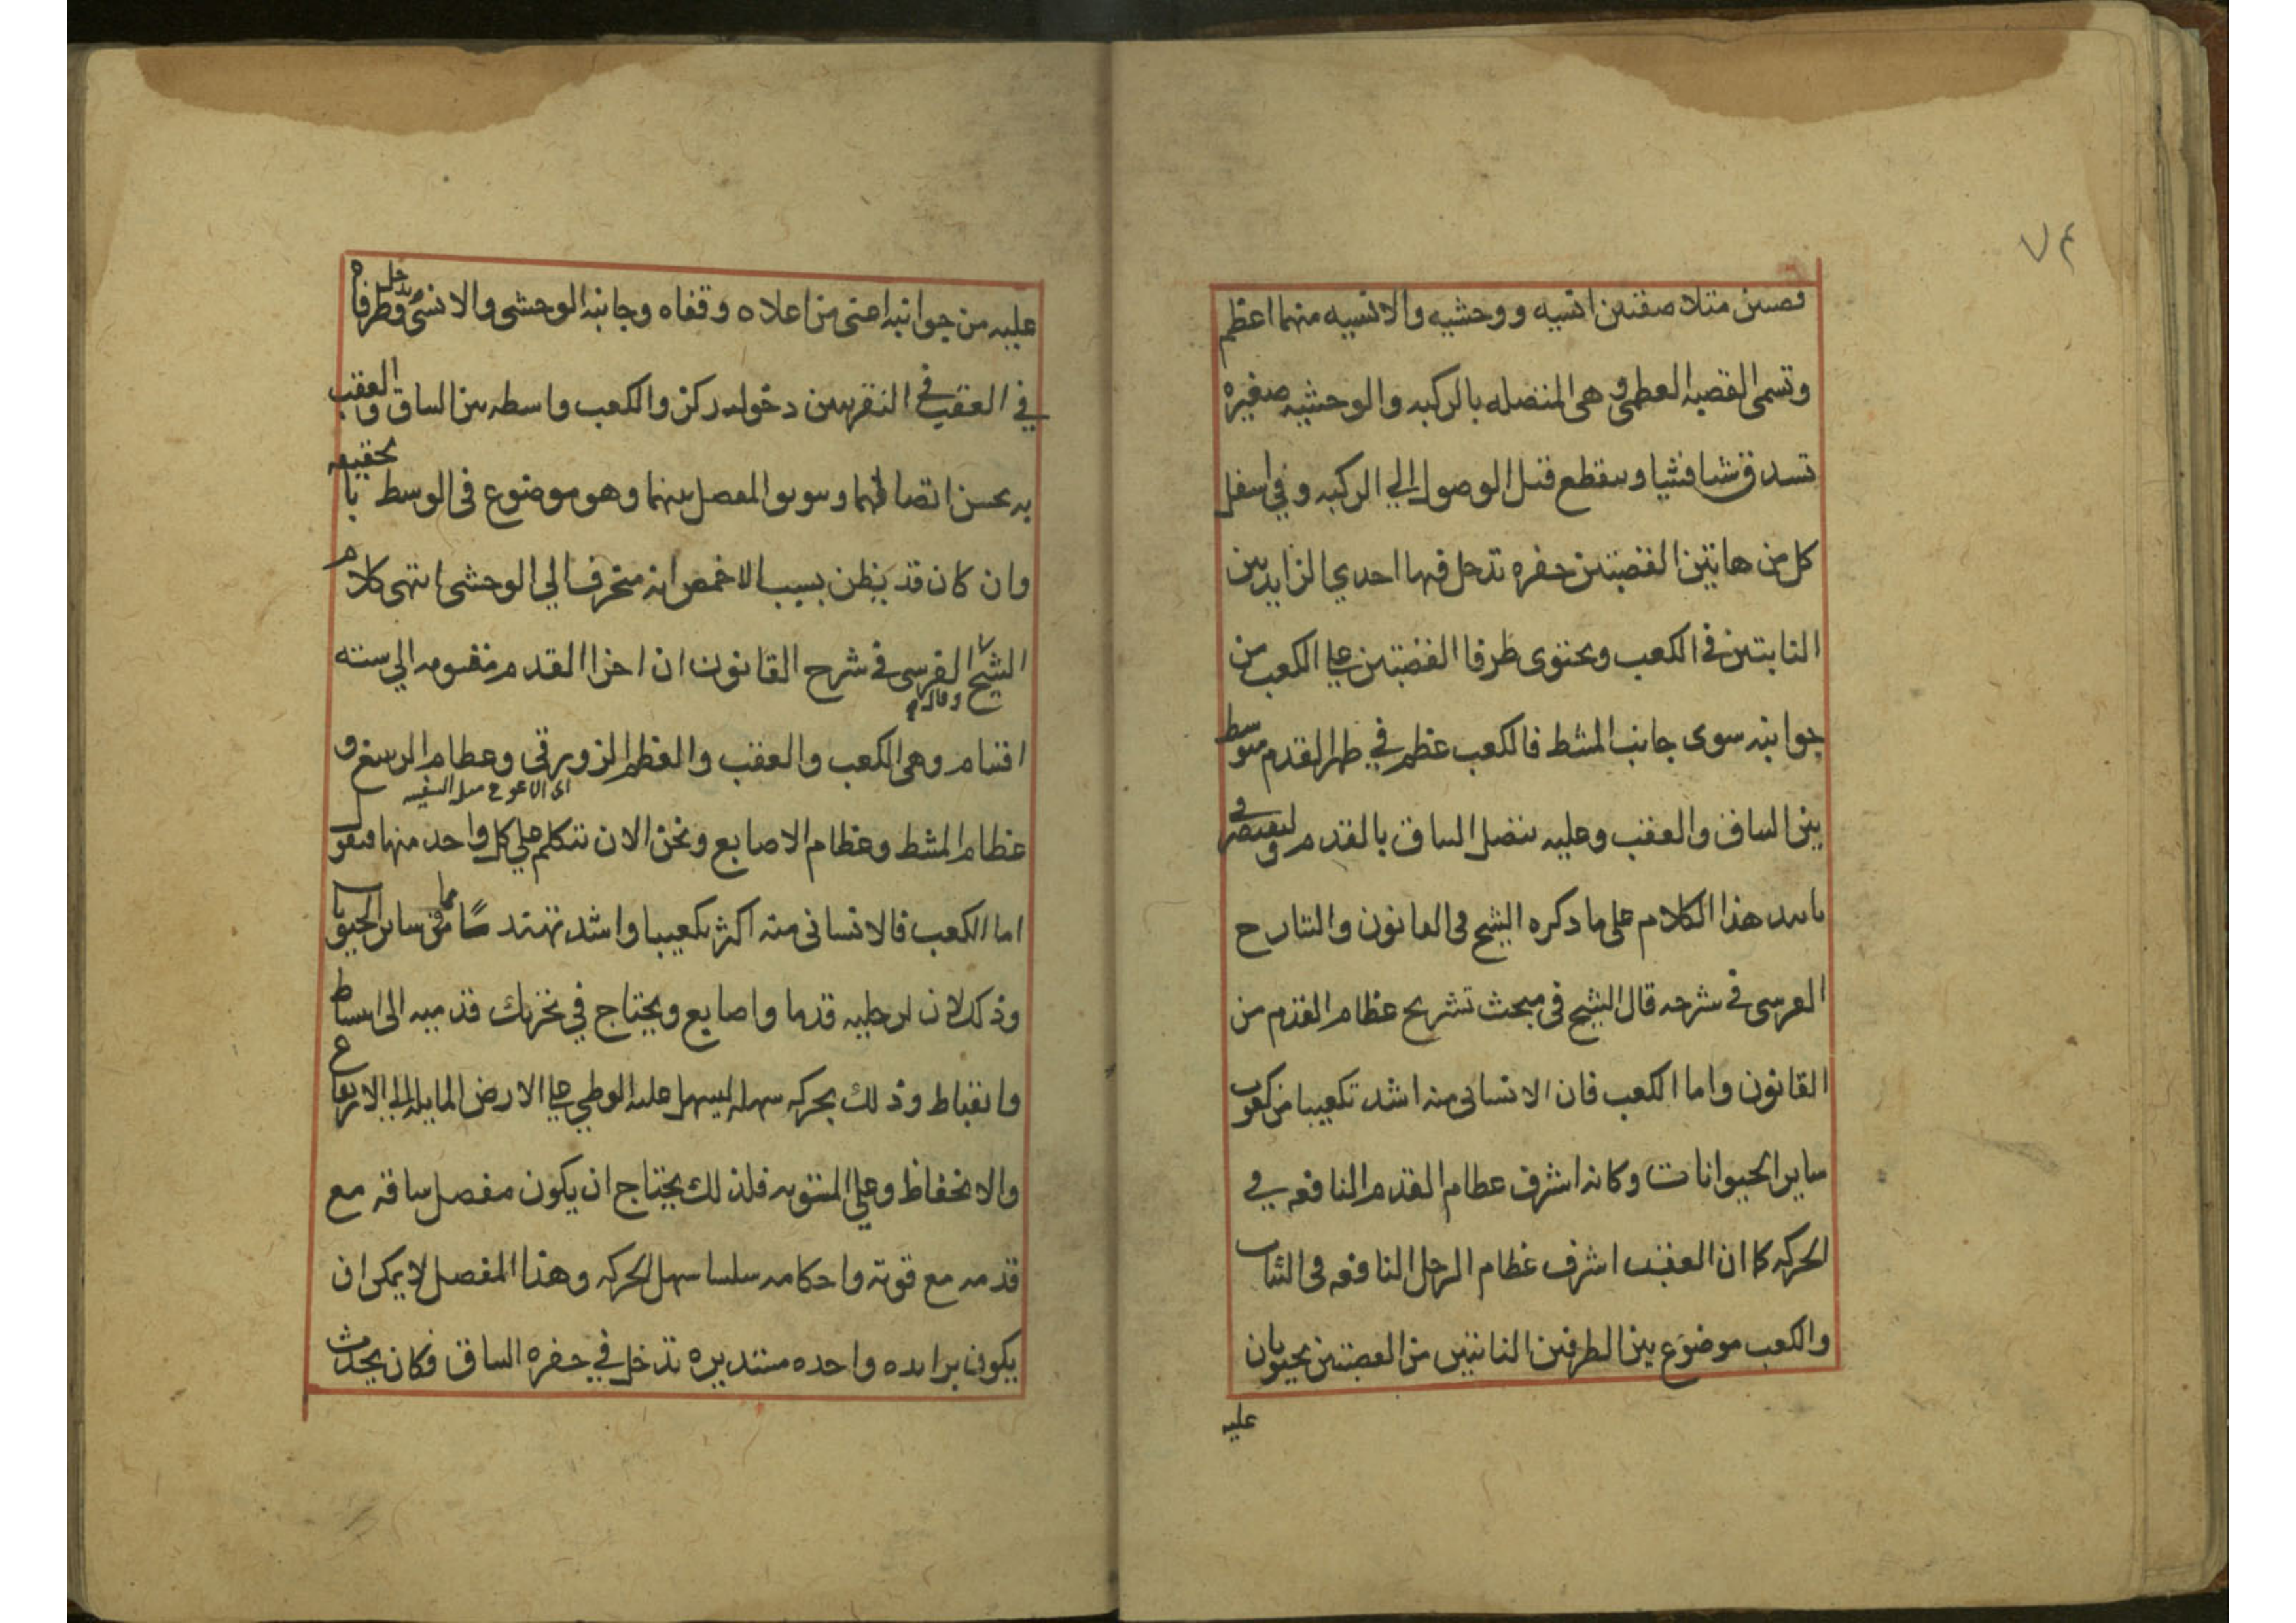 ٧٤
قصبتين متلاصقتين انسيه ووحشيه والانسيه منهما اعظم
وتسمى القصبه العظمى وهى المتصله بالركبه والوحشيه صغيره
تستدق شيا فشيا وينقطع قبل الوصول الي الركبه وفي اسفل
كل من هاتين القصبتين حفره تدخل فيها احدي الزايدتين
النابتتين في الكعب ويحتوى طرفا القصبتين علي الكعب من
جوانبه سوى جانب المشط فالكعب عظم في ظهر القدم متوسط
بين الساق والعقب وعليه يتصل الساق بالقدم
هذا الكلام على ما ذكره الشيخ فى القانون والشارح
القرسى في شرحه قال الشيخ فى مبحث تشريح عظام القدم من
القانون واما الكعب فان الانسانى منه اشد تكعيبا من كعوب
ساير الحيوانات وكانه اشرف عظام القدم النافعه في
الحركه كما ان العقب اشرف عظام الرجل النافعه فى الثبات
والكعب موضوع بين الطرفين الناتيين من القصبتين يحتويان
عليه
عليه من جوانبه اعنى من اعلاه وقفاه وجانبه الوحشى والانسى ويدخل طرفاه
في العقب في النقرتين دخول ركن والكعب واسطه بين الساق والعقب
به يحسن اتصالهما ويتوثق المفصل بينهما وهو موضوع فى الوسط بالحقيقه
وان كان قد يظن بسبب الاخمص انه منحرف الي الوحشى انتهى كلام
الشيخ وقال القرسى في شرح القانون ان اجزا القدم مقسومه الي سته
اقسام وهى الكعب والعقب والعظم الزورقي وعظام الرسغ و
عظام المشط وعظام الاصابع ونحن الان نتكلم علي كل واحد منها فنقول
اما الكعب فالانسانى منه اكثر تكعيبا واشد تهندسًا مما فى ساير الحيوانات
وذلك لان لرجليه قدما واصابع ويحتاج في تحريك قدميه الى انبساط
وانقباط وذلك بحركه سهله ليسهل عليه الوطي علي الارض المايله الي الارتفاع
والانخفاظ وعلي المستويه فلذلك يحتاج ان يكون مفصل ساقه مع
قدمه مع قوته واحكامه سلسا سهل الحركه وهذا المفصل لا يمكن ان
يكون بزايده واحده مستديره تدخل في حفره الساق فكان يحدث